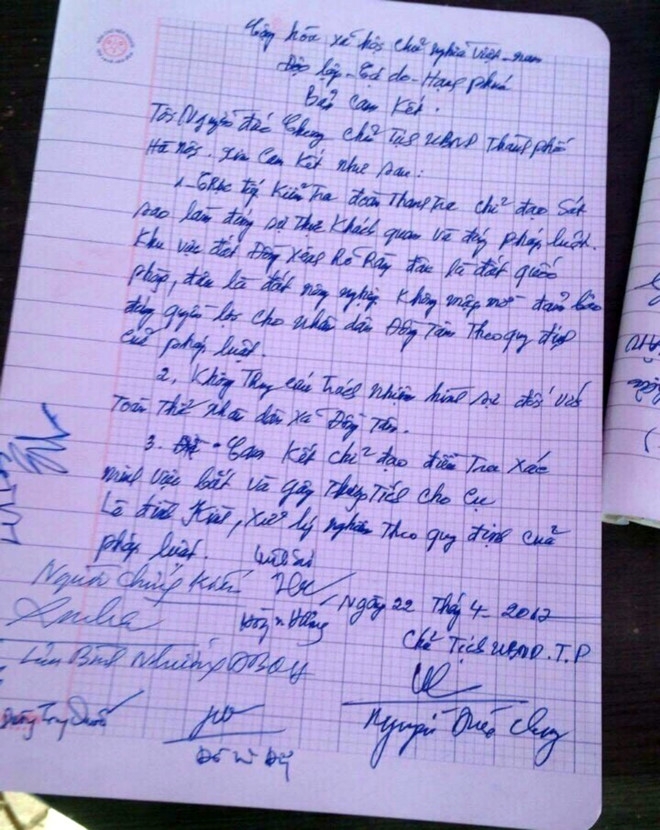 Cộng hòa xã hội chủ nghĩa Việt-nam
Độc lập-Tự do-Hạnh phúc
Bản Cam Kết.
Tôi Nguyễn đức Chung Chủ Tịch UBND Thành phố
Hà nội. Xin Cam Kết như sau:
1-Trực tiếp Kiểm Tra đoàn Thanh Tra chỉ đạo Sát
sao làm đúng sự thật Khách quan và đúng pháp luật.
Khu vực đất Đồng Xênh Rõ Ràng đâu là đất quốc
phòng, đâu là đất nông nghiệp Không mập mờ đảm bảo
đúng quyền lợi cho Nhân dân Đồng Tâm Theo quy định
của pháp luật.
2, Không Truy cứu Trách Nhiệm hình sự đối với
Toàn Thể nhân dân xã Đồng Tâm.
3. Cam Kết chỉ đạo điều Tra Xác
minh Việc bắt và gây Thương Tích cho Cụ
Lê đình Kình, Xử lý nghiêm Theo quy định của
pháp luật.
Người Chứng Kiến
Ngày 22 Tháng 4-2017
Chủ Tịch UBND.T.P
Lưu Bình Nhưỡng ĐBQH
Nguyễn Đức Chung